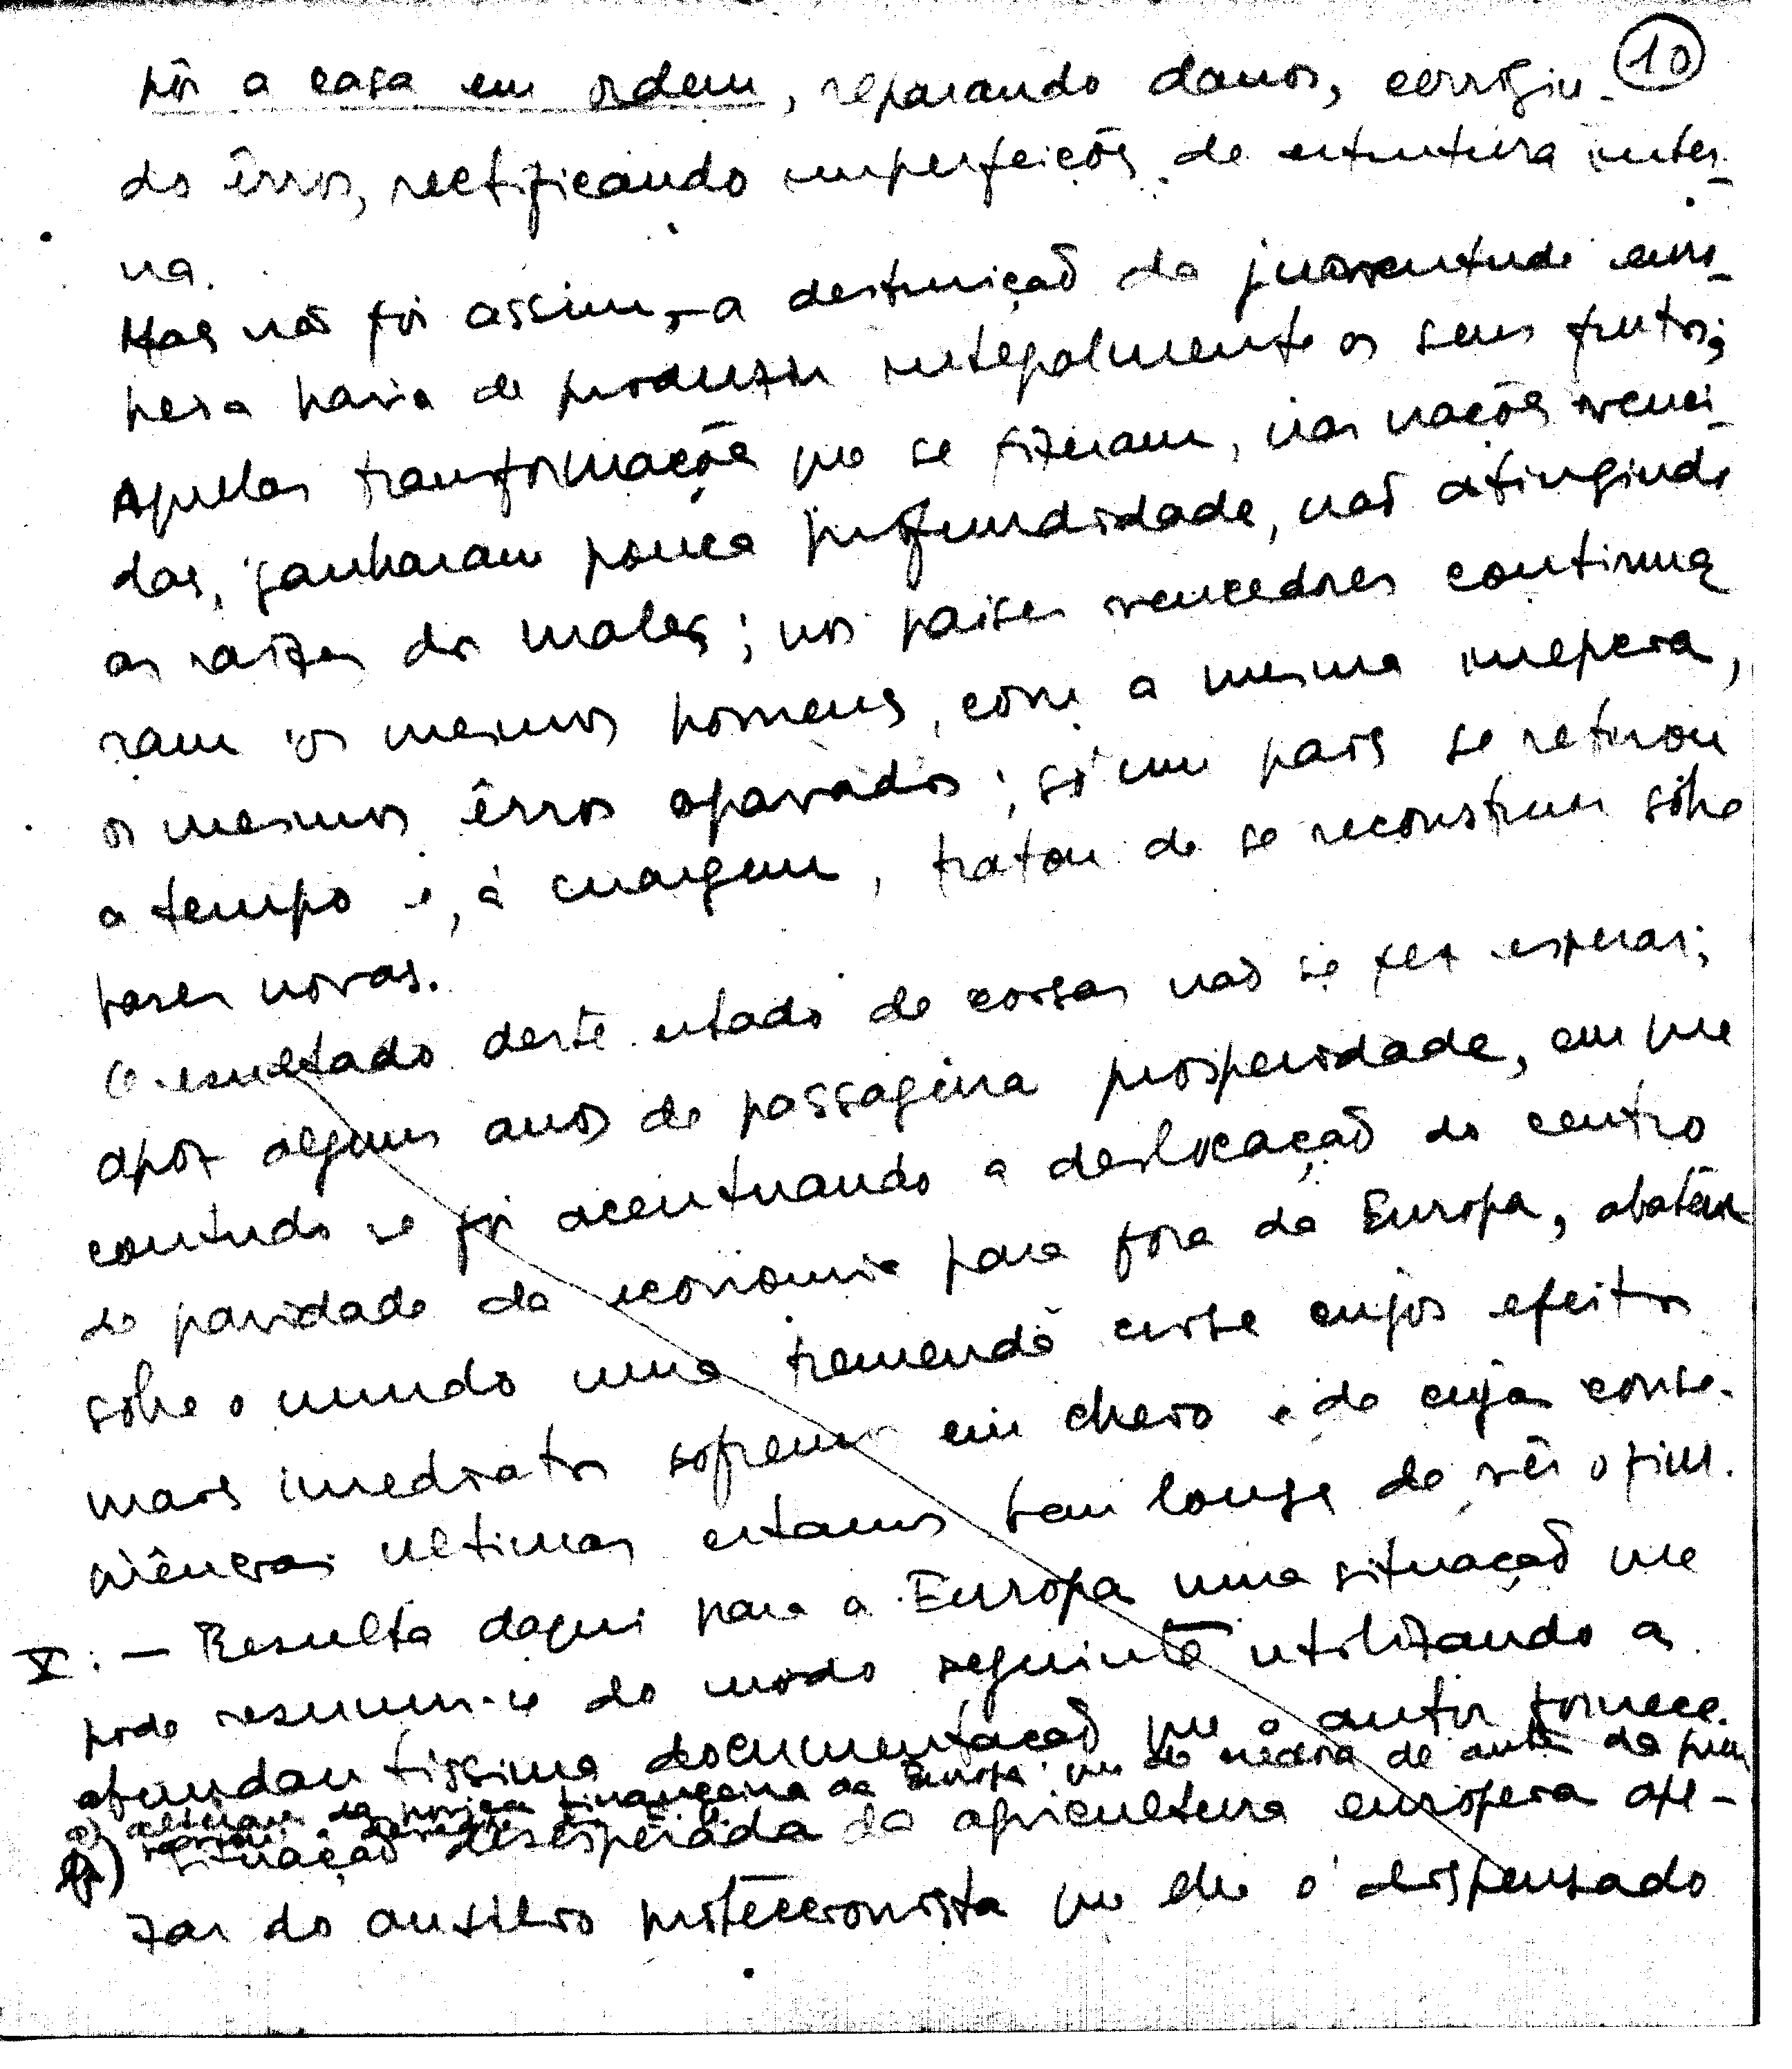 10
pôr a casa em ordem, reparando danos, corrigin-
do êrros, rectificando imperfeições de estrutura inter-
na.
Mas não foi assim, – a destruição da juventude euro-
peia havia de produzir integralmente os seus frutos;
Aquelas transformações que se fizeram, nas nações venci-
das, ganharam pouca profundidade, não atingindo
as raízes dos males; nos paises vencedores continua
ram os mesmos homens, com a mesma
os mesmos êrros agravados; só um pais se retirou
a tempo e, á margem, tratou de se reconstruir sôbre
bases novas.
O resultado deste estado de coisas não se fez esperar;
após alguns anos de passageira prosperidade, em que
contudo se foi acentuando a deslocação do centro
de gravidade da economia para fora da Europa, abateu-
sobre o mundo uma tremenda crise cujos efeitos
mais imediatos sofremos em cheio e de cujas conse-
quências ultimas estamos bem longe de vêr o fim.
V. — Resulta daqui para a Europa uma situação que
pode resumir-se do modo seguinte utilizando a
abundantissima documentação que o autor fornece.
a) da posição financeira da Europa de antes da
b) situação desesperada da agricultura europeia ape-
zar do auxilio proteccionista que lhe é dispensado